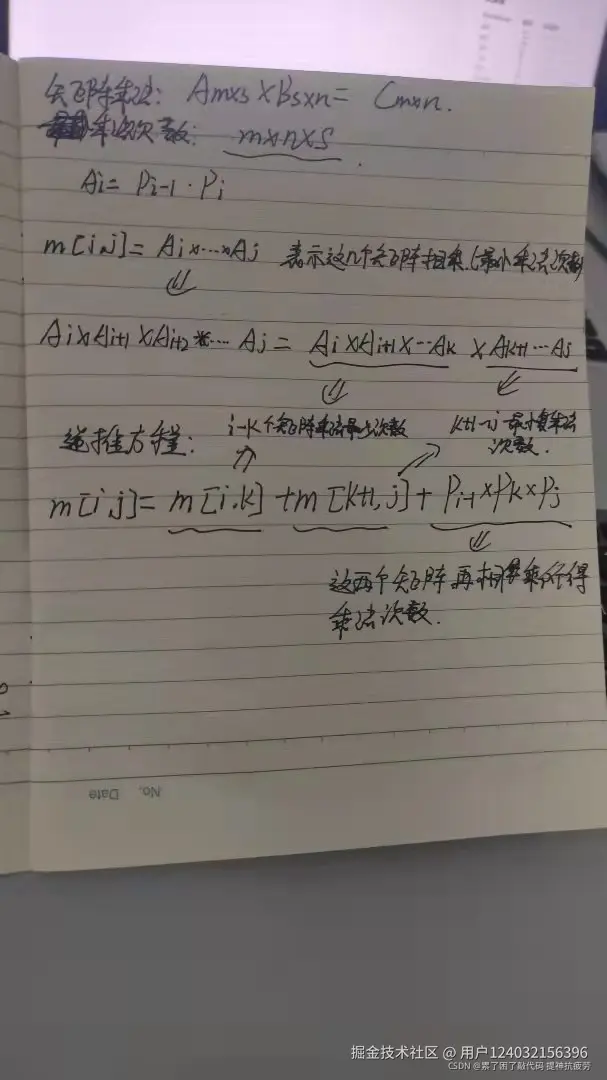 矩阵乘法: Am×s × Bs×n = Cm×n.
乘法次数: m×n×s
Ai = Pi-1 · Pi
m[i,j] = Ai×...×Aj 表示这几个矩阵相乘最小乘法次数
Ai×Ai+1×Ai+2×... Aj = Ai×Ai+1×...Ak × Ak+1...Aj
i-k个矩阵乘法最少次数
k+1-j 最小乘法
次数.
递推方程:
m[i,j] = m[i,k] + m[k+1,j] + Pi-1×Pk×Pj
这两个矩阵再相乘所得
乘法次数.
No. Date
掘金技术社区 @ 用户124032156396
CSDN @累了困了敲代码 提神抗疲劳